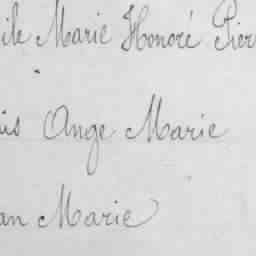 ile Marie Honoré Pier
is Ange Marie
an Marie